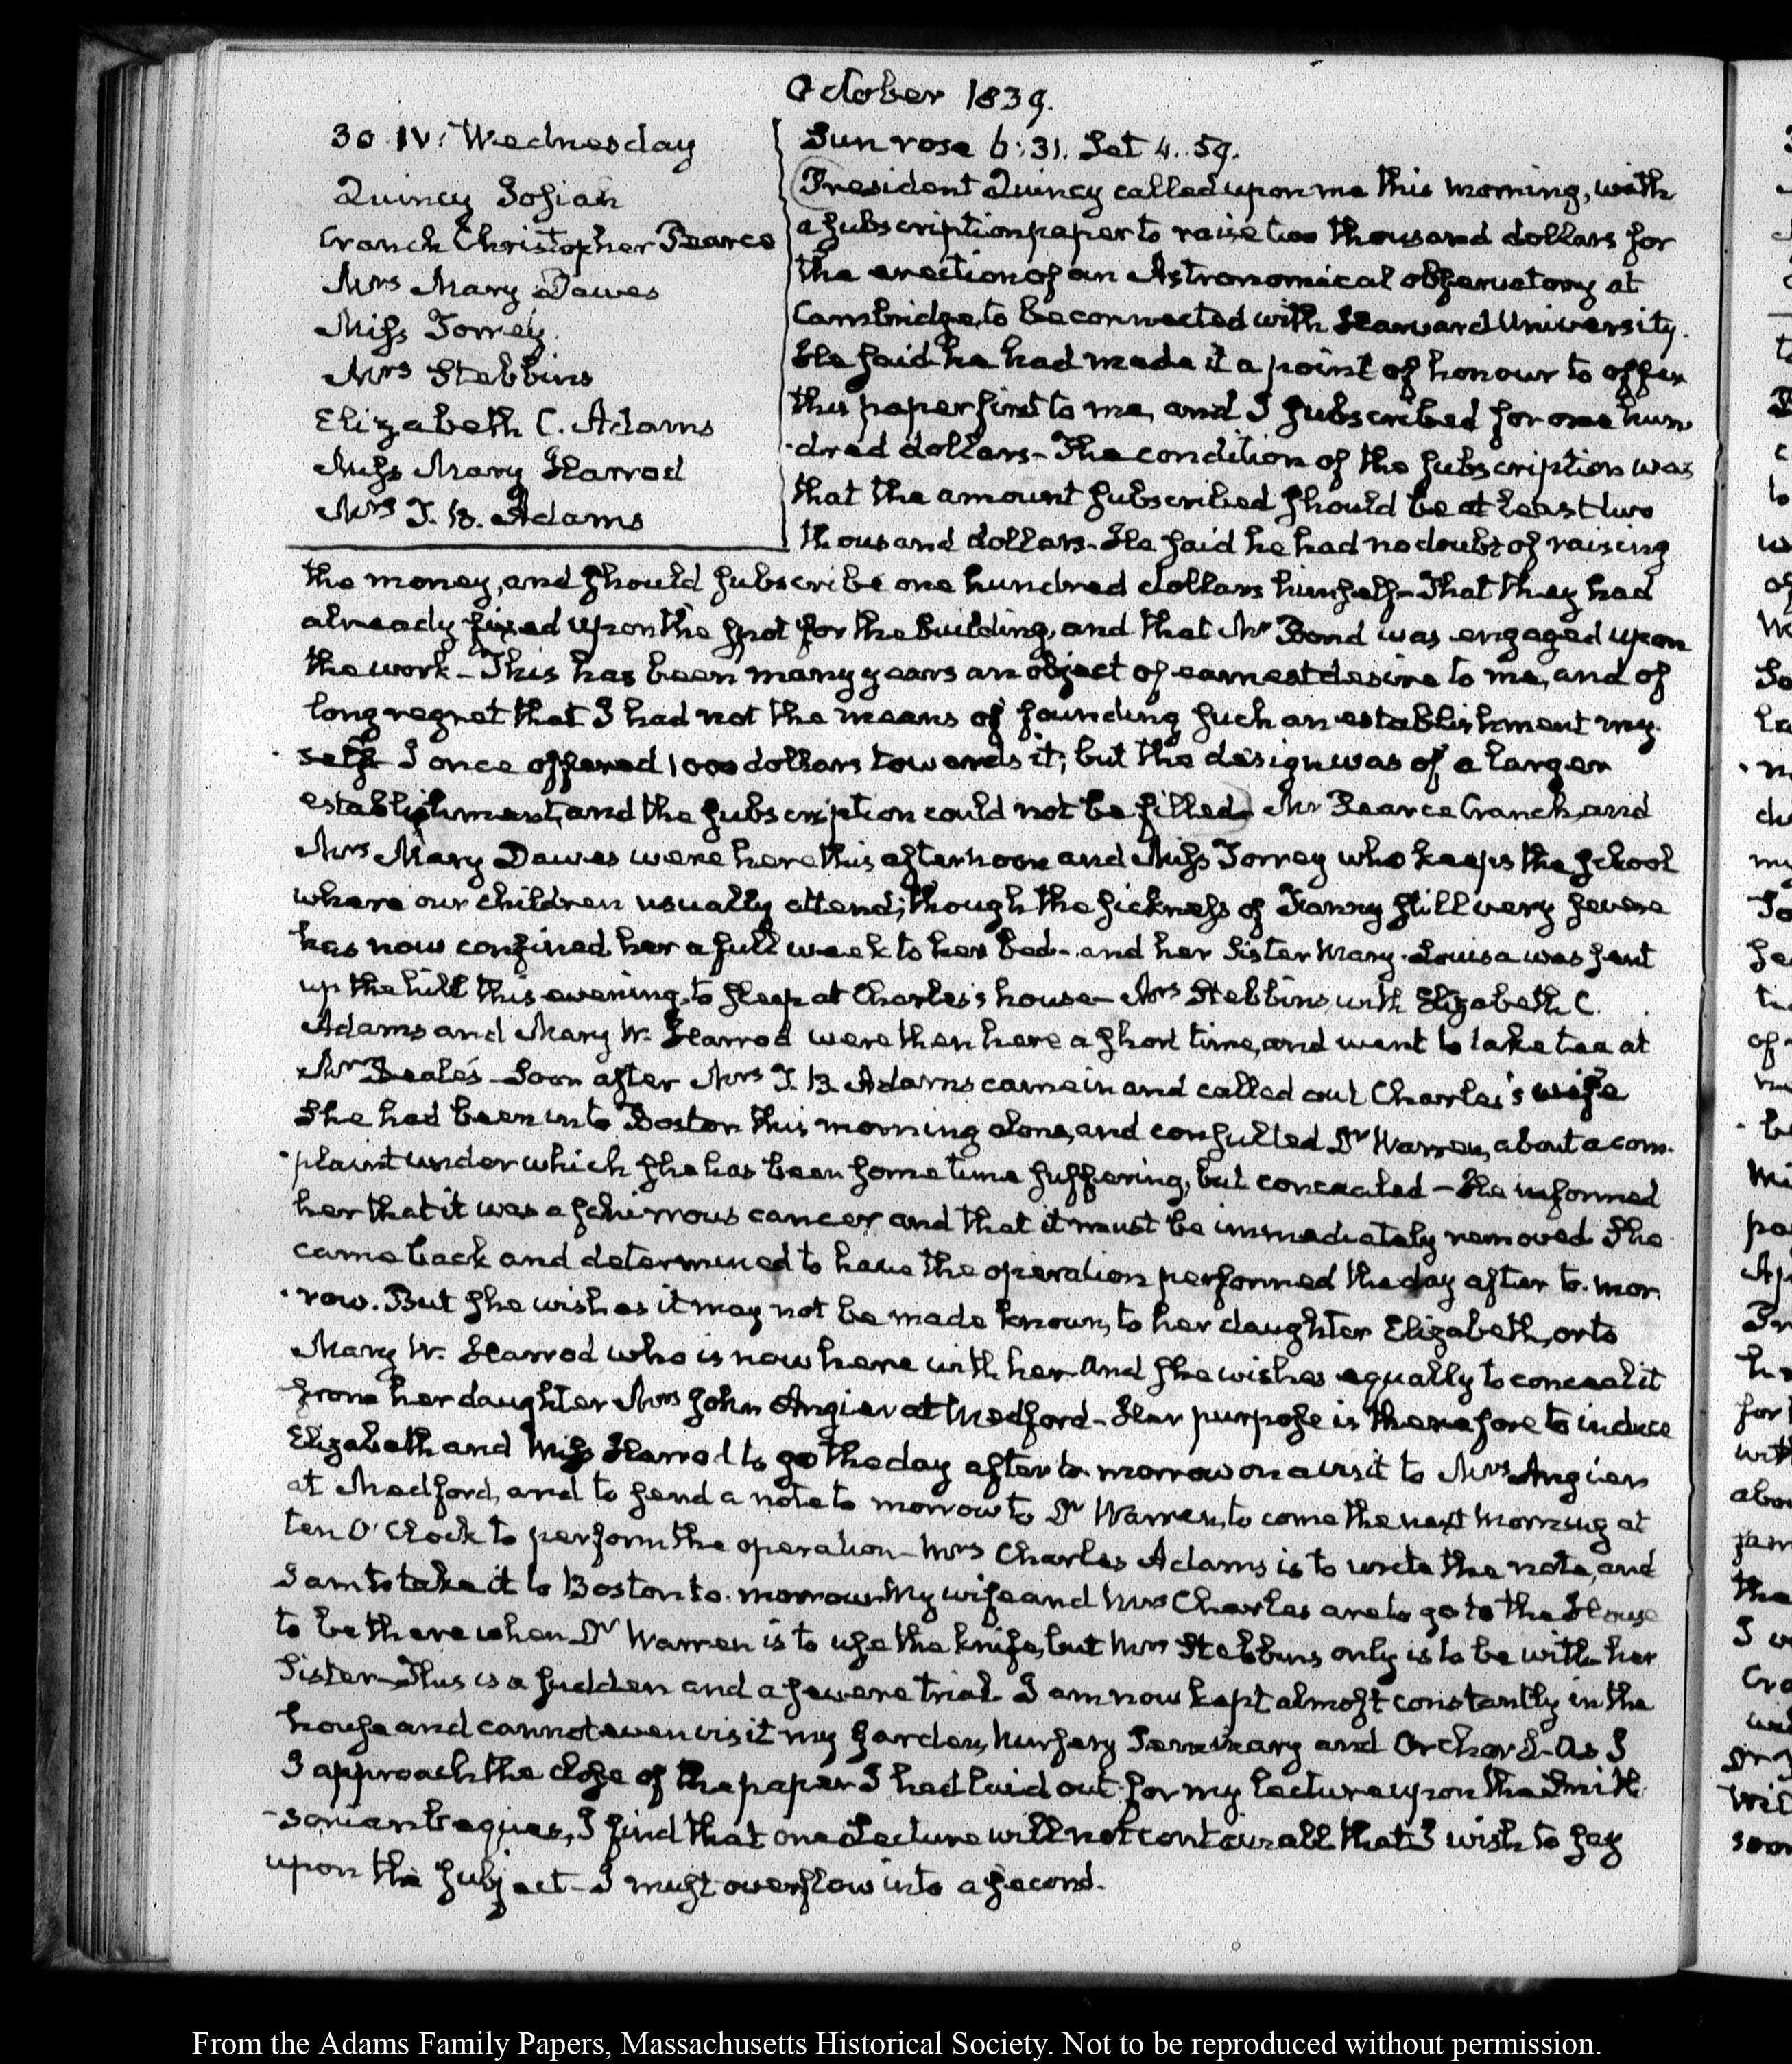 October 1839.
30. IV: Wednesday
Quincy Josiah
Cranch Christopher Pearce
Mrs Mary Dawes
Miss Torrey.
Mrs Stebbins
Elizabeth C. Adams
Miss Mary Harrod
Mrs T. B. Adams
Sun rose 6:31. Set 4..59.
President Quincy called upon me this morning, with
a subscription paper to raise two thousand dollars for
the erection of an Astronomical observatory at
Cambridge, to be connected with Harvard University.
He said he had made it a point of honour to offer
this paper first to me, and I subscribed for one hun
-dred dollars- The condition of the subscription was
that the amount subscribed should be at least two
thousand dollars- He said he had no doubt of raising
the money, and should subscribe one hundred dollars himself- That they had
already fixed upon the spot for the building, and that Mr Bond was engaged upon
the work- This has been many years an object of earnest desire to me, and of
long regret that I had not the means of founding such an establishment my-
-self I once offered 1000 dollars towards it; but the design was of a larger
establishment, and the subscription could not be filled. Mr Pearce Cranch, and
Mrs Mary Dawes were here this afternoon and Miss Torrey who keeps the school
where our children usually attend; though the sickness of Fanny still very severe
has now confined her a full week to her bed- and her Sister Mary-Louisa was sent
up the hill this evening, to sleep at Charles's house- Mrs Stebbins, with Elizabeth C.
Adams and Mary W. Harrod were then here a short time, and went to take tea at
Mr Beale's- Soon after Mrs T. B. Adams came in and called out Charles's wife
She had been into Boston this morning alone, and consulted Dr Warren, about a com-
-plaint under which she has been some time suffering, but concealed- He informed
her that it was a schirrous cancer and that it must be immediately removed. She
came back and determined to have the operation performed the day after to-mor
-row. But she wishes it may not be made known, to her daughter Elizabeth, or to
Mary W. Harrod who is now here with her- And she wishes equally to conceal it
from her daughter Mrs John Angier at Medford- Her purpose is therefore to induce
Elizabeth and Miss Harrod to go the day after to-morrow on a visit to Mrs Angier
at Medford, and to send a note to morrow to Dr Warren, to come the next morning at
ten O'Clock to perform the operation- Mrs Charles Adams is to write the note, and
I am to take it to Boston to-morrow. My wife and Mrs Charles are to go to the House
to be there when Dr Warren is to use the knife, but Mrs Stebbins only is to be with her
Sister- This is a sudden and a severe trial. I am now kept almost constantly in the
house and cannot even visit my garden, Nursery Seminary and Orchard- As I
I approach the close of the paper I had laid out for my lecture upon the Smith-
-sonian bequest, I find that one Lecture will not contain all that I wish to say
upon the subject- I must overflow into a second.
From the Adams Family Papers, Massachusetts Historical Society. Not to be reproduced without permission.